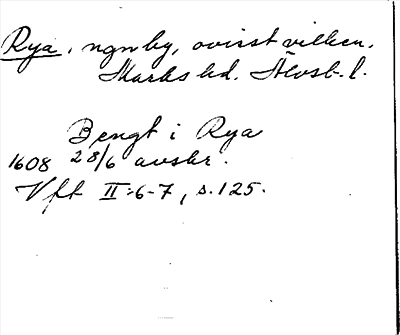 Rya, ngn by, ovisst vilken.
Marks hd. Älvsb. l.
Bengt i Rya
1608 28/6 avskr.
Vft II:6-7, s. 125.